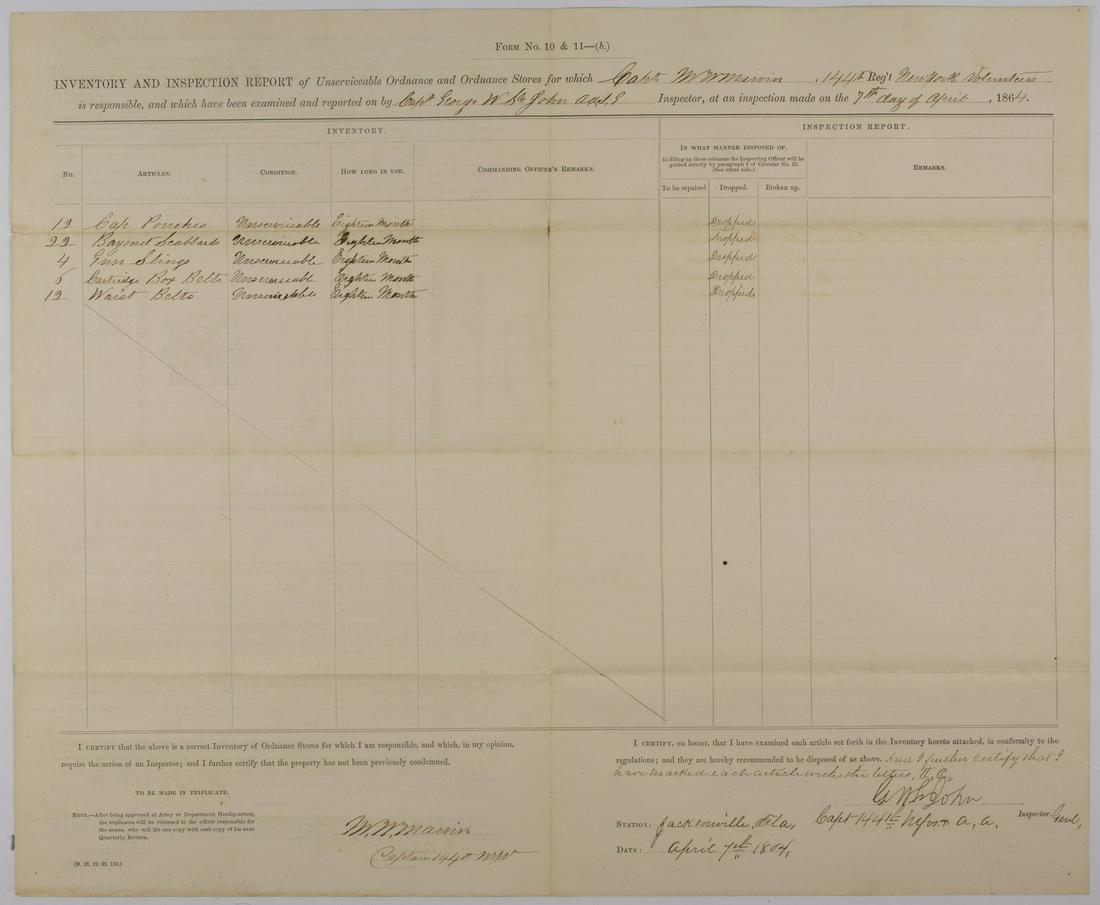 Form No. 10 & 11—(b.)
INVENTORY AND INSPECTION REPORT of Unserviceable Ordnance and Ordnance Stores for which Capt M W Marvin, 144th Reg't New York Volunteers
is responsible, and which have been examined and reported on by Capt George W St John Inspector, at an inspection made on the 7th day of April, 1864.
INVENTORY.
INSPECTION REPORT.
No.
Articles.
Condition.
How long in use.
Commanding Officer's Remarks.
In what manner disposed of.
In filling up these columns the Inspecting Officer will be
guided strictly by paragraph 1 of Circular No.
(See other side.)
To be repaired.
Dropped.
Broken up.
Remarks.
12 Cap Pouches Unserviceable Eighteen Month Dropped
22 Bayonet Scabbards Unserviceable Eighteen Month Dropped
4 Gun Slings Unserviceable Eighteen Month Dropped
6 Cartridge Box Belts Unserviceable Eighteen Month Dropped
12 Waist Belts Unserviceable Eighteen Month Dropped
I certify that the above is a correct Inventory of Ordnance Stores for which I am responsible, and which, in my opinion,
require the action of an Inspector; and I further certify that the property has not been previously condemned.
TO BE MADE IN TRIPLICATE.
Note.—After being approved at Army or Department Headquarters,
the triplicates will be returned to the officer responsible for
the stores, who will file one copy with each copy of his next
Quarterly Return.
M W Marvin
Captain 144th NYV
I certify, on honor, that I have examined each article set forth in the Inventory hereto attached, in conformity to the
regulations; and they are hereby recommended to be disposed of as above. And I further certify that I
have marked each article with the letters
G W St John
Station: Jacksonville, Fla, Capt 144th NYVs & A, A. Inspector Genl,
Date: April 7th 1864,